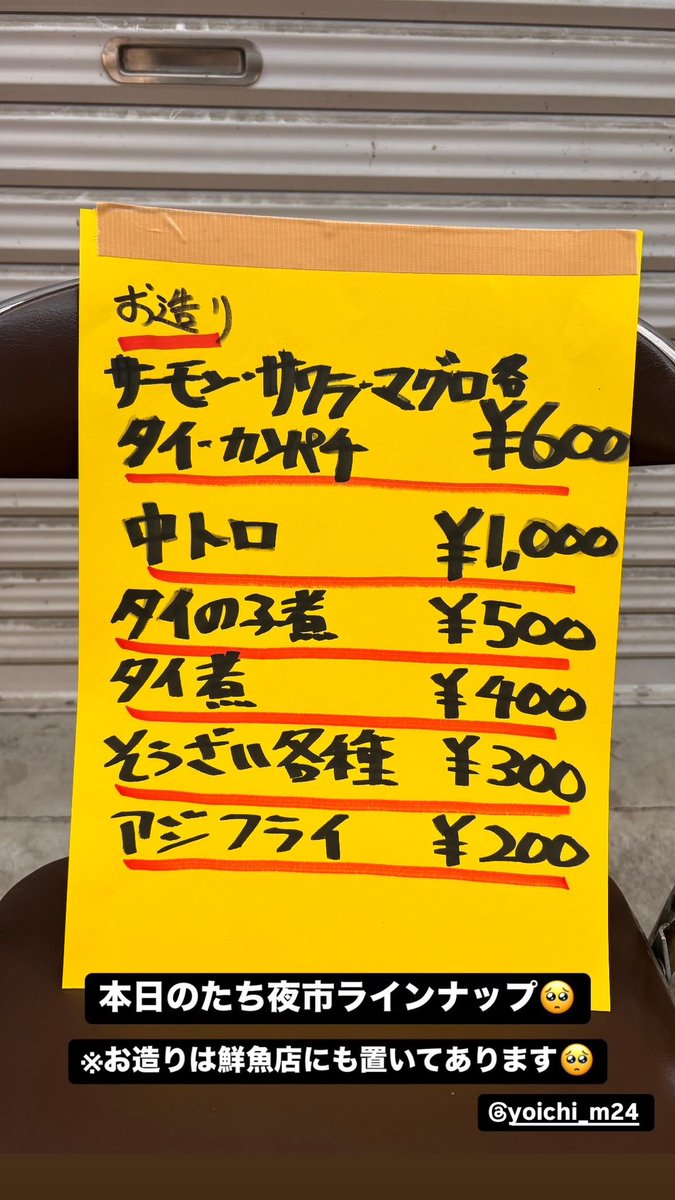 お造り
サーモン・サワラ・マグロ各
タイ・カンパチ ¥600
中トロ ¥1,000
タイの子煮 ¥500
タイ煮 ¥400
そうざい各種 ¥300
アジフライ ¥200
本日のたち夜市ラインナップ🥺
※お造りは鮮魚店にも置いてあります🥺
@yoichi_m24